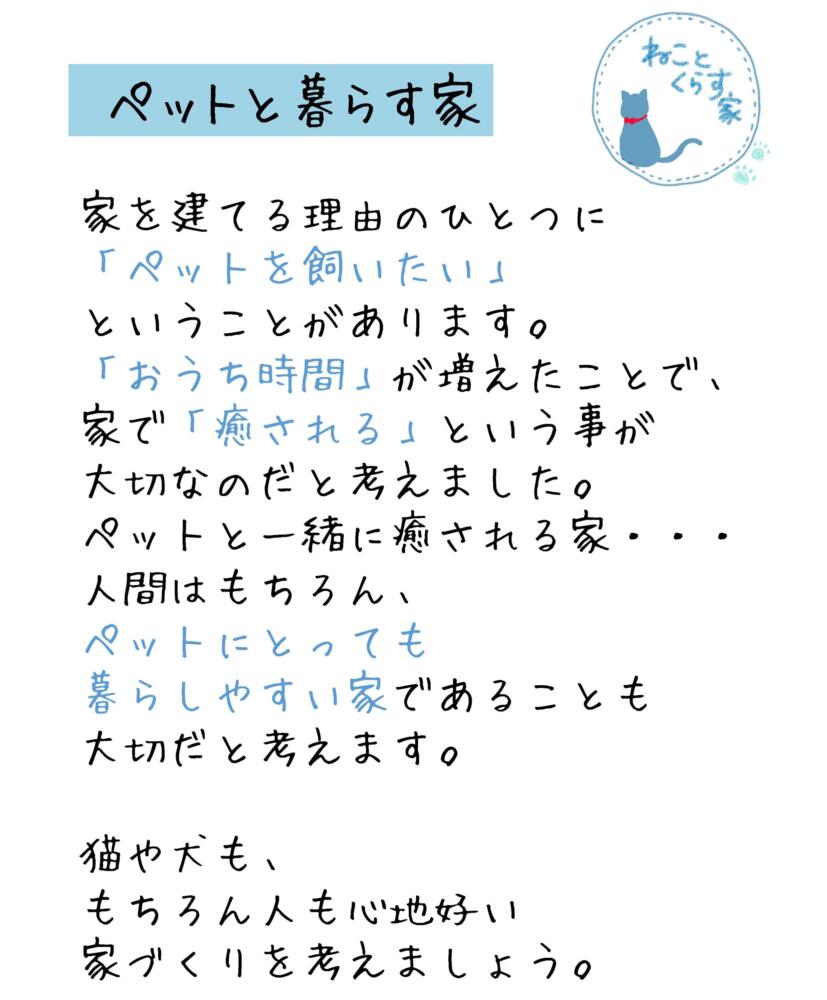 ペットと暮らす家
ねこと
くらす
家
家を建てる理由のひとつに
「ペットを飼いたい」
ということがあります。
「おうち時間」が増えたことで、
家で「癒される」という事が
大切なのだと考えました。
ペットと一緒に癒される家・・・
人間はもちろん、
ペットにとっても
暮らしやすい家であることも
大切だと考えます。
猫や犬も、
もちろん人も心地好い
家づくりを考えましょう。